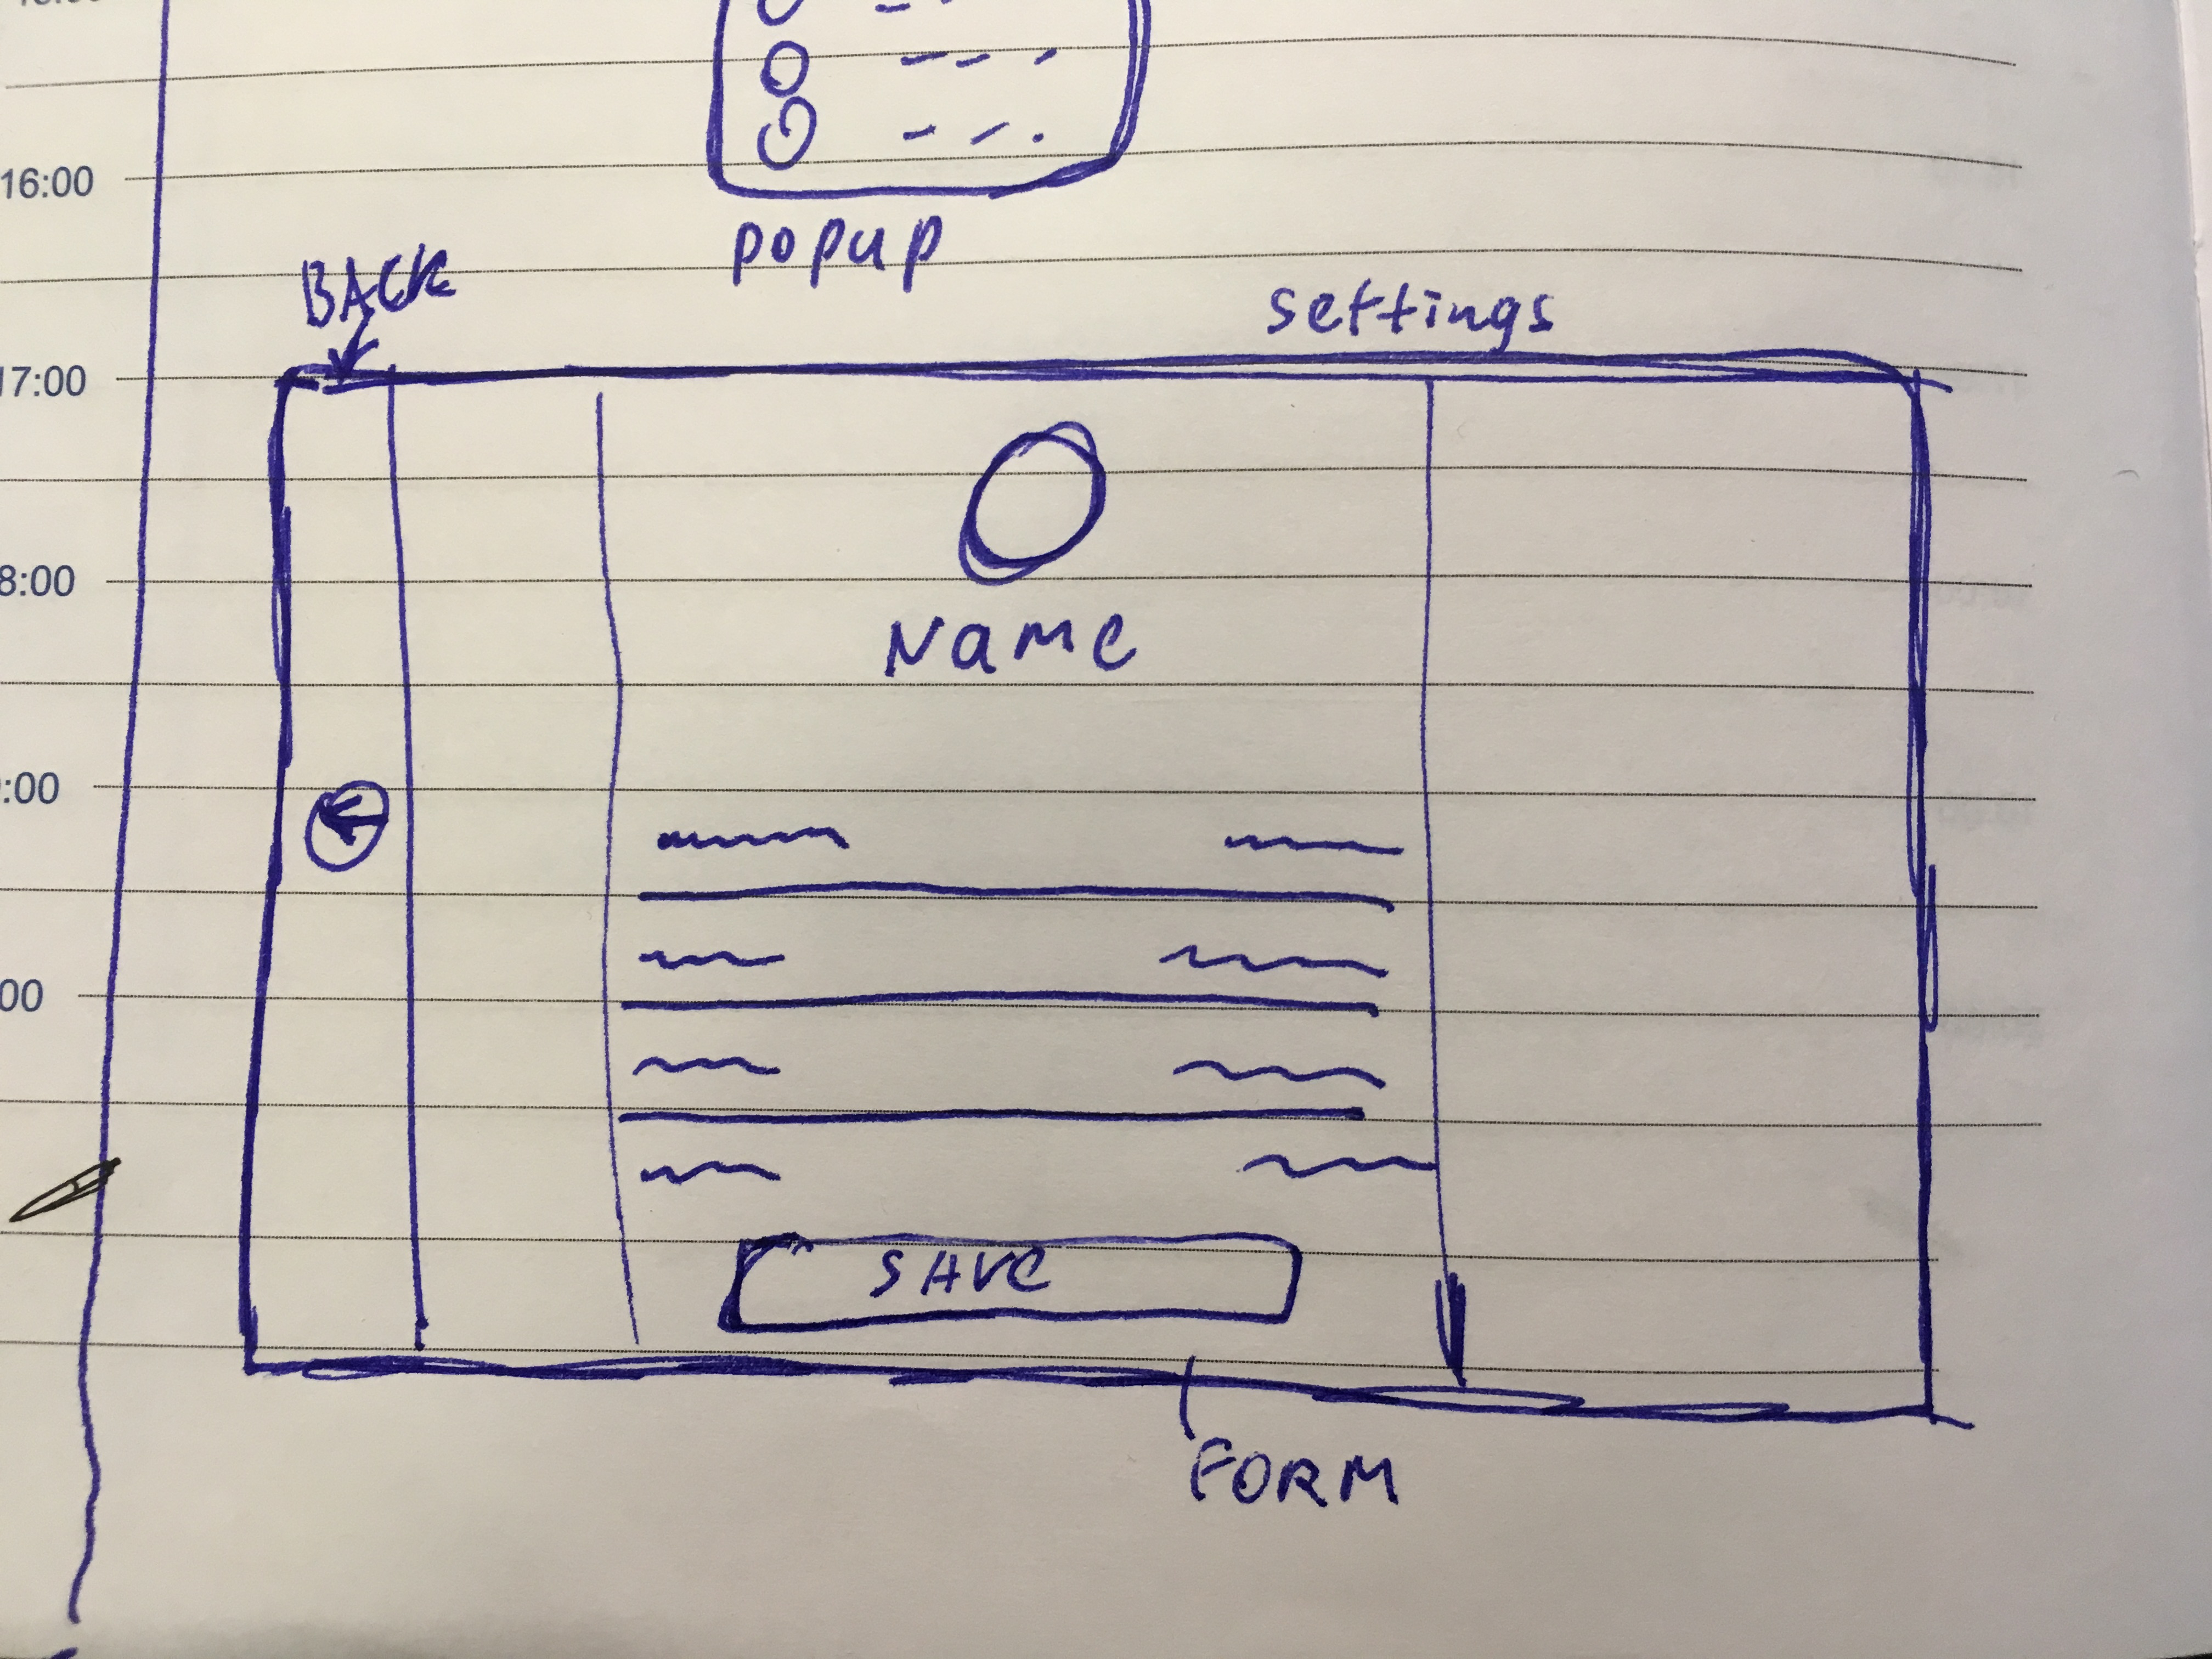 16:00
popup
BACK
settings
17:00
8:00
Name
:00
00
SAVE
FORM